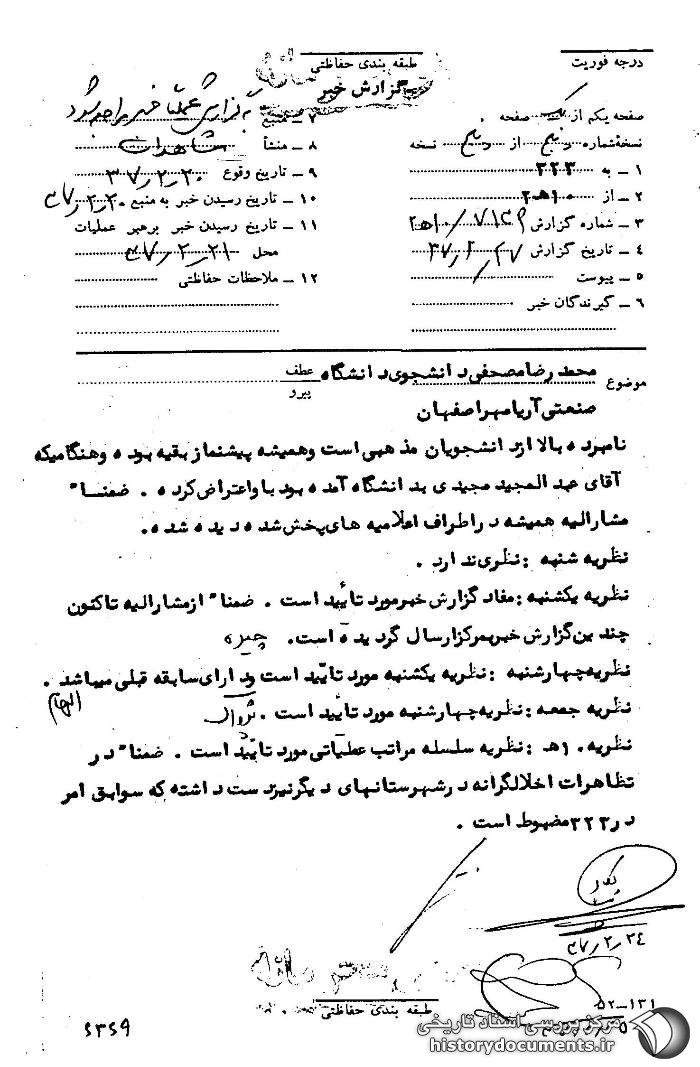 درجه فوریت
طبقه بندی حفاظتی
گزارش خبر
صفحه یکم از یک صفحه
نسخهٔ شماره پنج از پنج نسخه
۱ ــ به ۳۲۳
۲ ــ از ۱۰ه‍۲
۳ ــ شماره گزارش ۱۰ه‍۲/
۴ ــ تاریخ گزارش ۳۷/۲/۲۷
۵ ــ پیوست
۶ ــ گیرندگان خبر
۷ ــ منبع به گزارش عملیات خبر مراجعه شود
۸ ــ منشأ شاهدان
۹ ــ تاریخ وقوع ۳۷/۲/۲۰
۱۰ ــ تاریخ رسیدن خبر به منبع ۳۷/۲/۲۰
۱۱ ــ تاریخ رسیدن خبر برهبر عملیات
محل ۳۷/۲/۲۱
۱۲ ــ ملاحظات حفاظتی
موضوع محمدرضا مصحفی دانشجوی دانشگاه عطف
پیرو
صنعتی آریامهر اصفهان
نامبرده بالا از دانشجویان مذهبی است و همیشه پیشنماز بقیه بوده و هنگامیکه
آقای عبدالمجید مجیدی بدانشگاه آمده بود باو اعتراض کرده . ضمنا"
مشارالیه همیشه در اطراف اعلامیه های پخش شده دیده شده.
نظریه شنبه : نظری ندارد .
نظریه یکشنبه : مفاد گزارش خبر مورد تأیید است . ضمنا" از مشارالیه تاکنون
چندین گزارش خبر بمرکز ارسال گردیده است. چیره
نظریه چهارشنبه : نظریه یکشنبه مورد تایید است و دارای سابقه قبلی میباشد .
الهام
نظریه جمعه : نظریه چهارشنبه مورد تایید است .
نظریه ۱۰ه‍ : نظریه سلسله مراتب عملیاتی مورد تایید است . ضمنا" در
تظاهرات اخلالگرانه در شهرستانهای دیگر نیز دست داشته که سوابق امر
در ۳۲۳ مضبوط است .
۳۷/۲/۲۴
طبقه بندی حفاظتی
۵۲ــ۱۳۱
مرکز بررسی اسناد تاریخی
historydocuments.ir